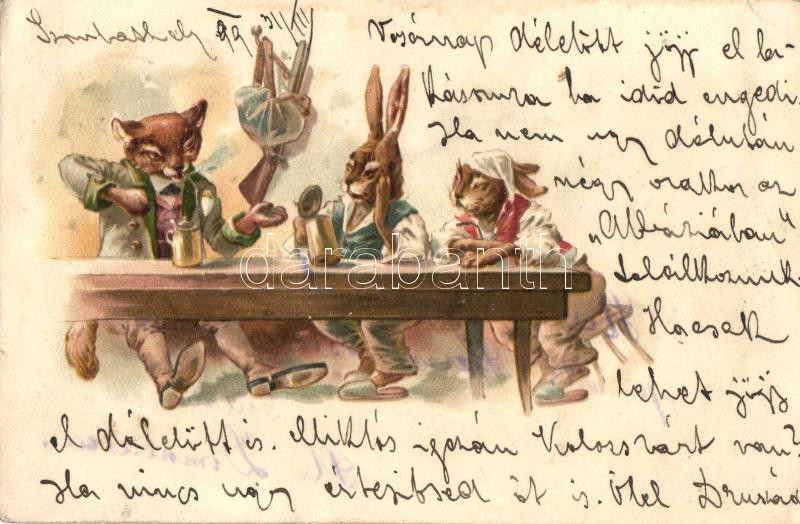 Szombathely 99 31/XII
Vasárnap délelőtt jőjj el la-
kásomra ha időd engedi.
Ha nem ugy délután
négy órakor az
„Abbáziában"
találkozunk.
Ha csak
lehet jőjj
el délelőtt is. Miklós igazán Kolozsvárt van?
Ha nincs ugy értesitsed őt is. Ölel
darabanth